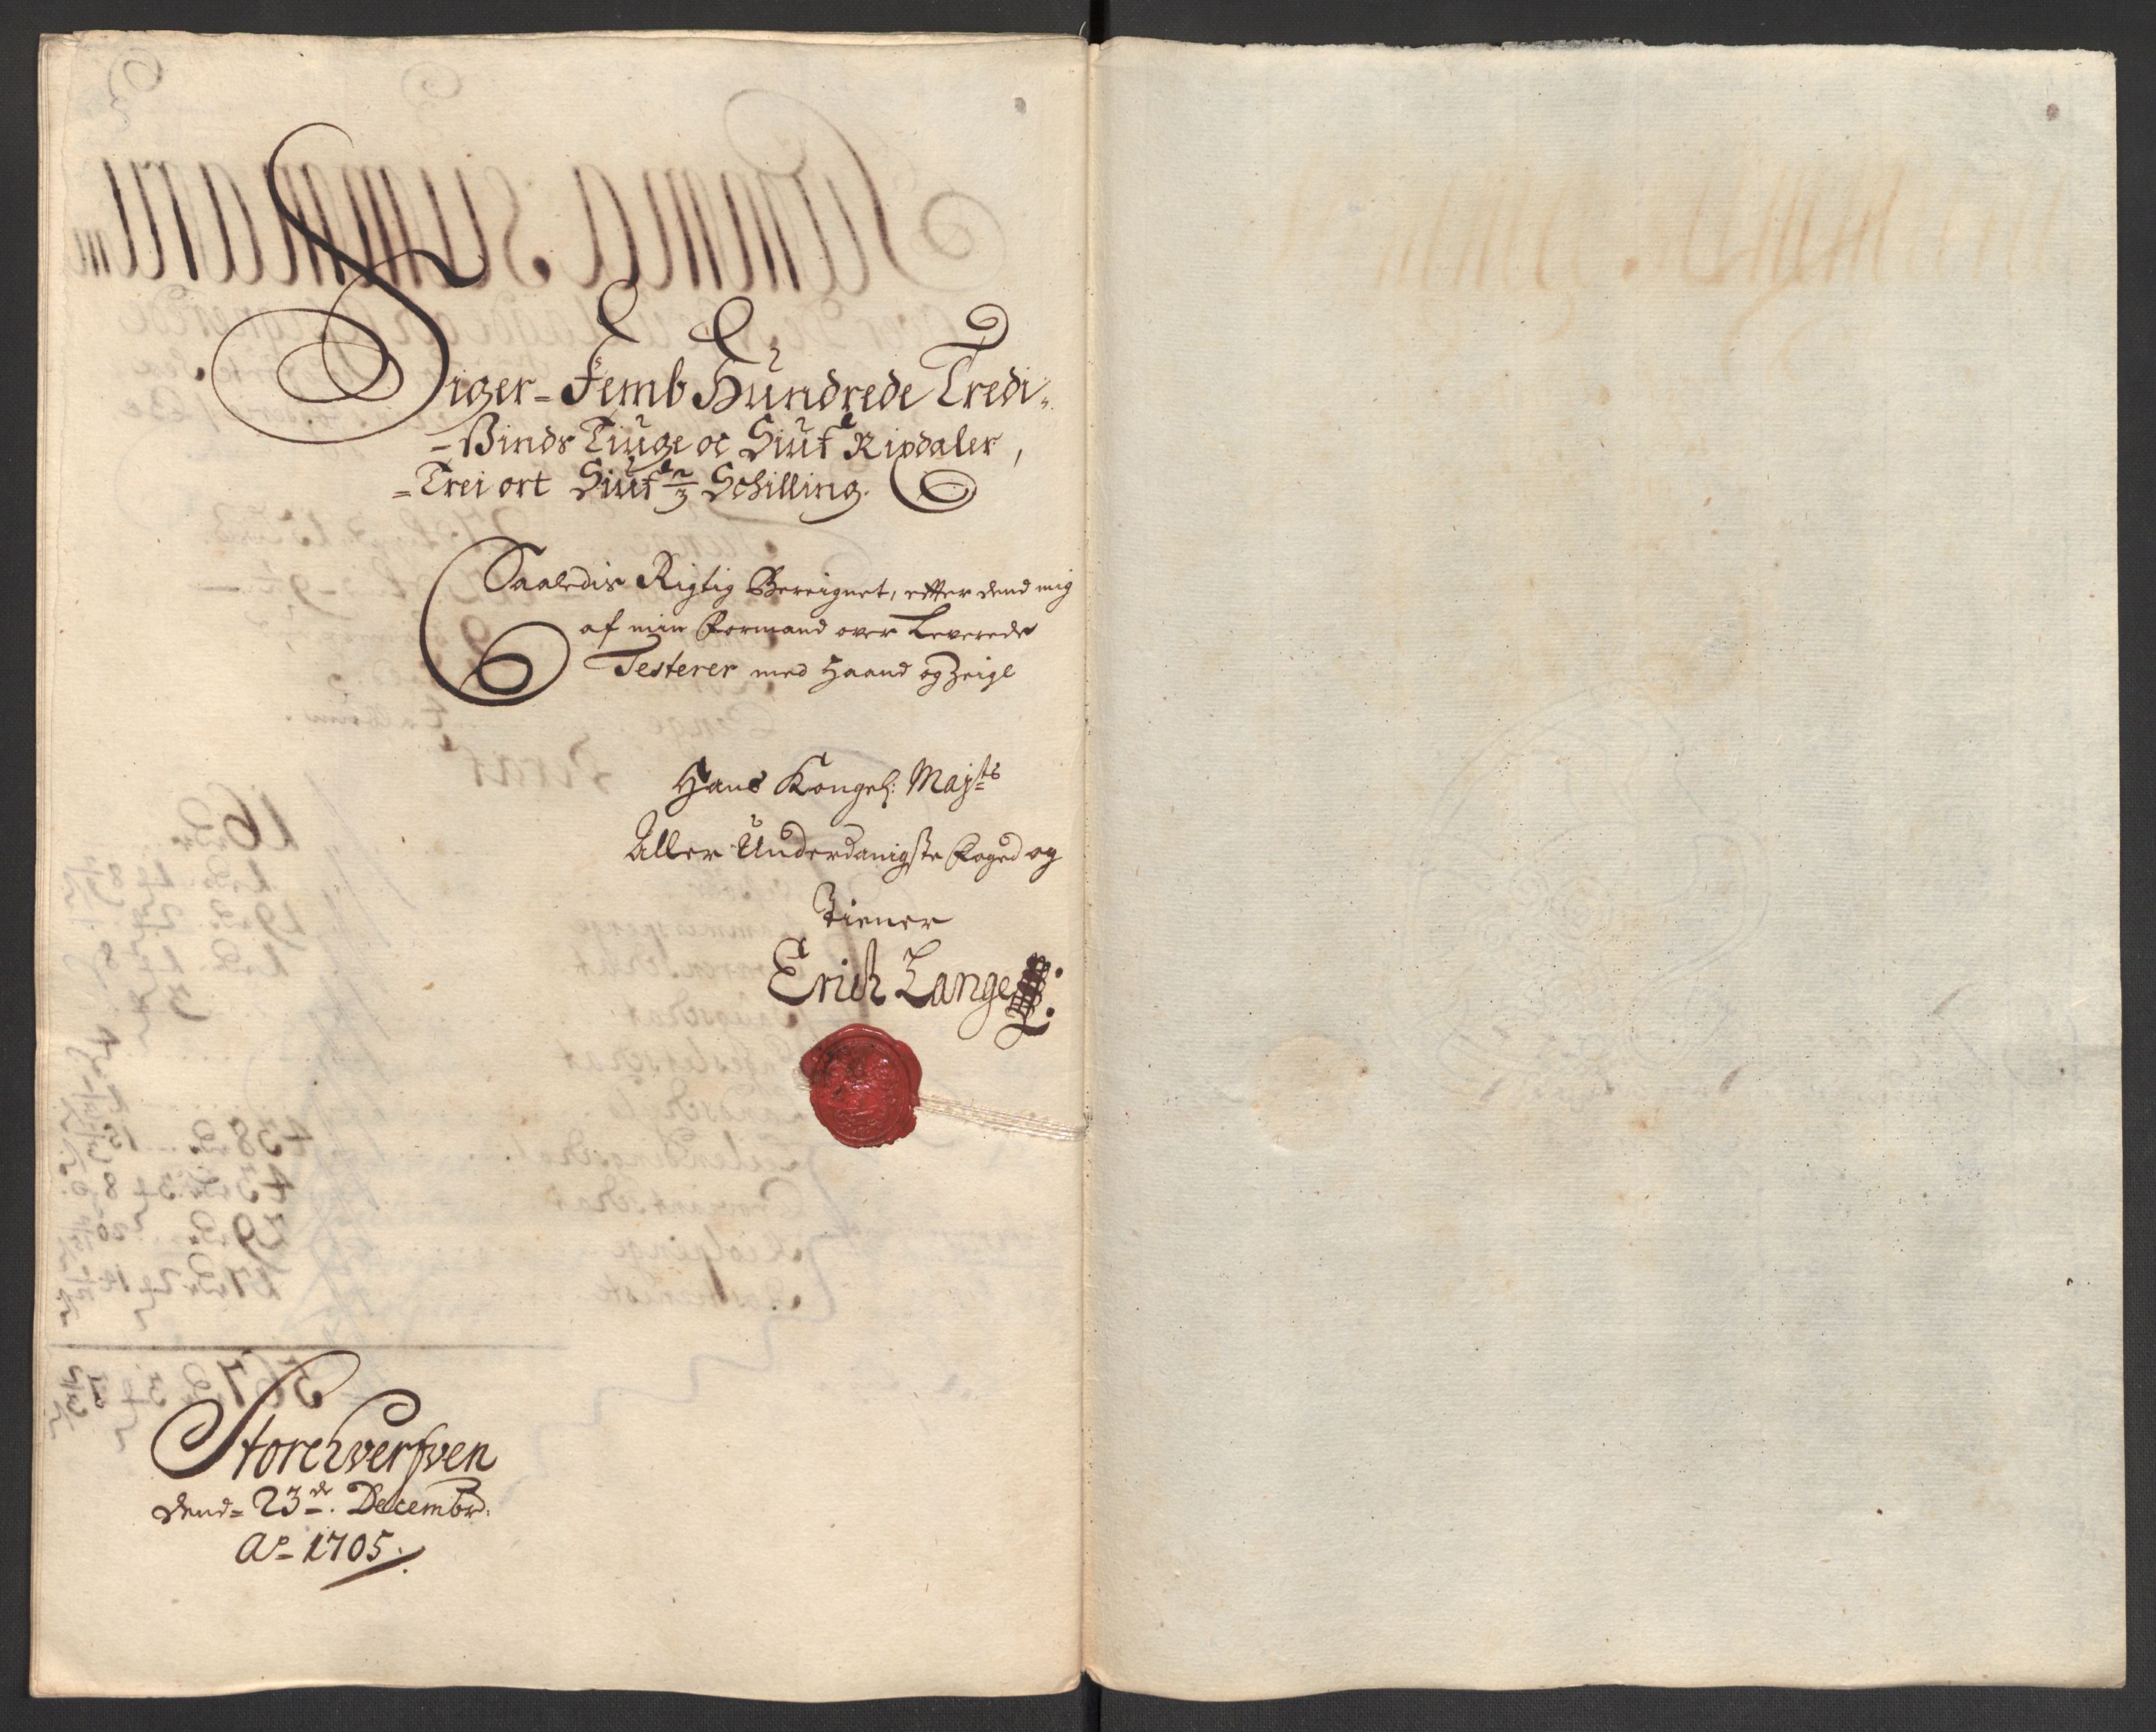 Siger- Femb Hundrede Tredi-
-Sinds Tiuge oc Siuf Rixdaler,
=Trei ort Siuf 2/3 Schilling.
Saaledis Rigtig Bereignet, efter dend mig
af min Formand over Leverede
Testerer med Haand og Zeigl
Hans Kongel: Maj:ts
Aller Underdanigste Foged og
Tiener
Erich Lange
Storchverfven
dend= 23de. Decembr:
Ao= 1705.